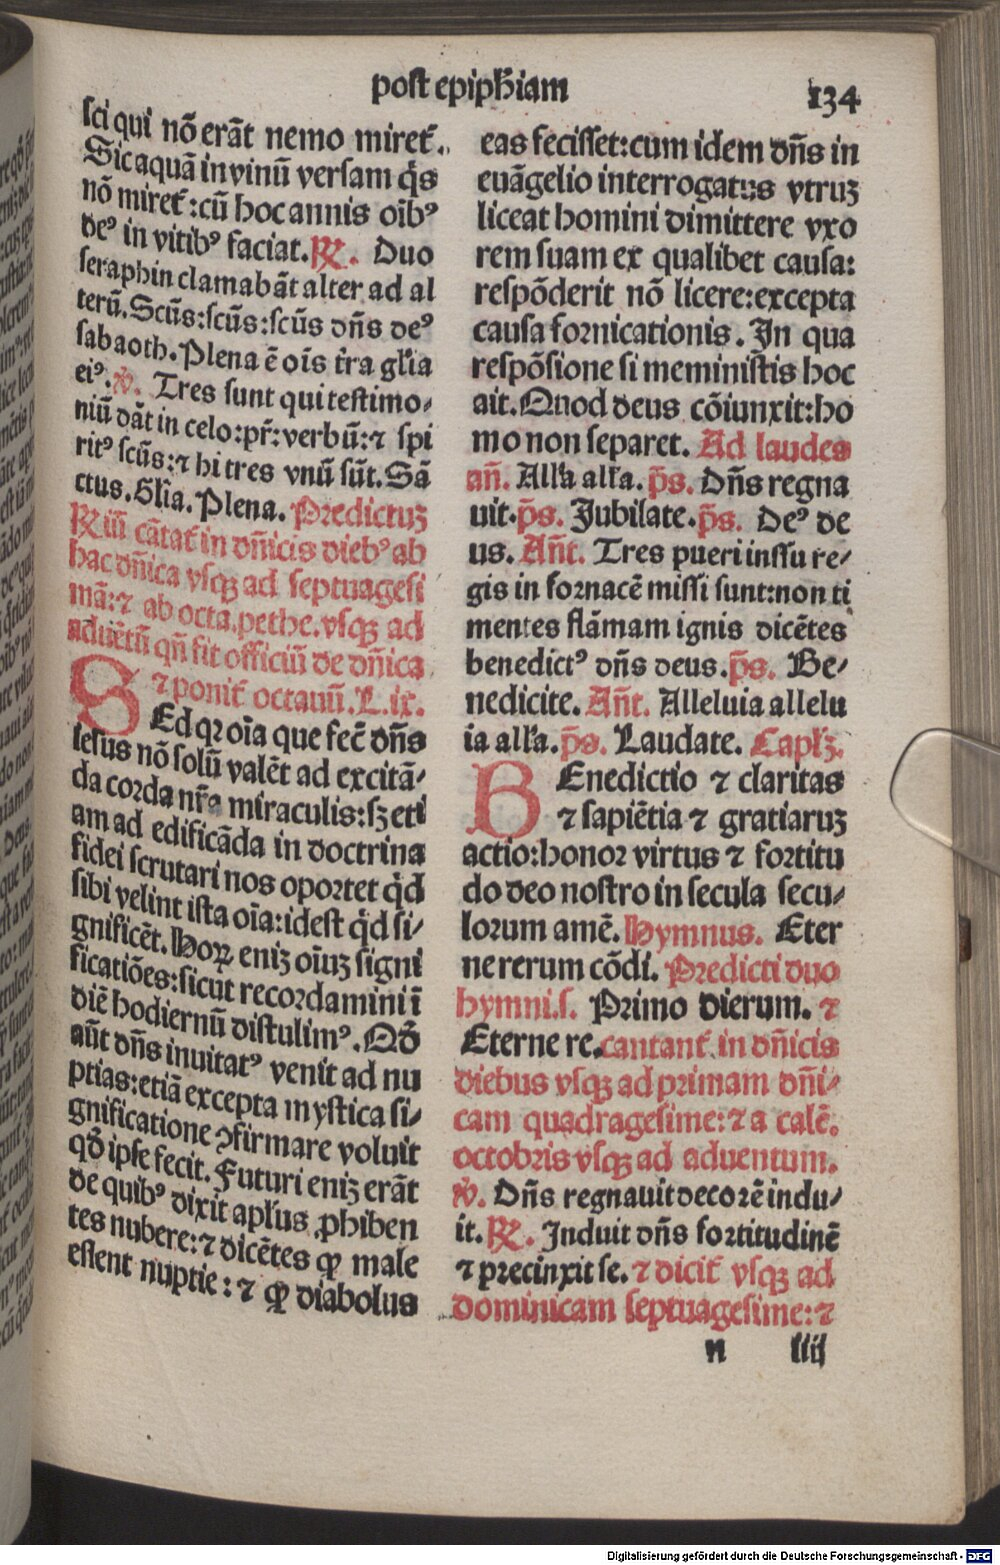 post epiphiam
134
sci qui nō erāt nemo miret᷑.
Sic aquā in vinū versam q̄s
nō miret᷑ :cū hoc annis oīb⁹
de⁹ in vitib⁹ faciat. ℟. Duo
seraphin clamabāt alter ad al
terū. Scūs:scūs:scūs dn̄s de⁹
sabaoth. Plena ē oīs t̄ra gl̄ia
ei⁹. ℣. Tres sunt qui testimo⸗
niū dāt in celo:pr̄:verbū:⁊ spi
rit⁹ scūs:⁊ hi tres vnū sūt. Sā
ctus. Gl̄ia. Plena. Predictuꝫ
℟iū cātat᷑ in dn̄icis dieb⁹ ab
hac dn̄ica vsqꝫ ad septuagesi
mā:⁊ ab octa.pethe.vsqꝫ ad
aduētū qn̄ fit officiū de dn̄ica
⁊ ponit᷑ octauū. L.ix.
SEd qꝛ oīa que fec̄ dn̄s
iesus nō solū valēt ad excitā⸗
da corda nr̄a miraculis:sꝫ eti
am ad edificāda in doctrina
fidei scrutari nos oportet qͥd
sibi velint ista oīa:idest qͥd si⸗
gnificēt. Hoꝝ eniꝫ oīuꝫ signi
ficatiōes:sicut recordamini ī
diē hodiernū distulim⁹. Qd̄
aūt dn̄s inuitat⁹ venit ad nu
ptias:etiā excepta mystica si⸗
gnificatione ꝯfirmare voluit
qd̄ ipse fecit. Futuri eniꝫ erāt
de quib⁹ dixit apl̄us ꝓhiben
tes nubere:⁊ dicētes ꝙ male
essent nuptie:⁊ ꝙ diabolus
eas fecisset:cum idem dn̄s in
euāgelio interrogatus vtruꝫ
liceat homini dimittere vxo
rem suam ex qualibet causa:
respōderit nō licere:excepta
causa fornicationis. In qua
respōsione si meministis hoc
ait. Quod deus cōiunxit:ho
mo non separet. Ad laudes
an̄. All̄a all̄a. p̄s. Dn̄s regna
uit. p̄s. Jubilate. p̄s. De⁹ de
us. An̄t. Tres pueri iussu re⸗
gis in fornacē missi sunt:non ti
mentes flāmam ignis dicētes
benedict⁹ dn̄s deus. p̄s. Be⸗
nedicite. An̄t. Alleluia allelu
ia all̄a. p̄s. Laudate. Capl̄ꝫ.
BEnedictio ⁊ claritas
⁊ sapiētia ⁊ gratiaruꝫ
actio:honor virtus ⁊ fortitu
do deo nostro in secula secu⸗
lorum amē. Hymnus. Eter
ne rerum cōdi. Predicti duo
hymni.s. Primo dierum. ⁊
Eterne re. cantant᷑ in dn̄icis
diebus vsqꝫ ad primam dn̄i⸗
cam quadragesime:⁊ a calē.
octobris vsqꝫ ad aduentum.
℣. Dn̄s regnauit decorē indu⸗
it. ℟. Induit dn̄s fortitudinē
⁊ precinxit se. ⁊ dicit᷑ vsqꝫ ad
dominicam septuagesime:⁊
n iiij
Digitalisierung gefördert durch die Deutsche Forschungsgemeinschaft - DFG